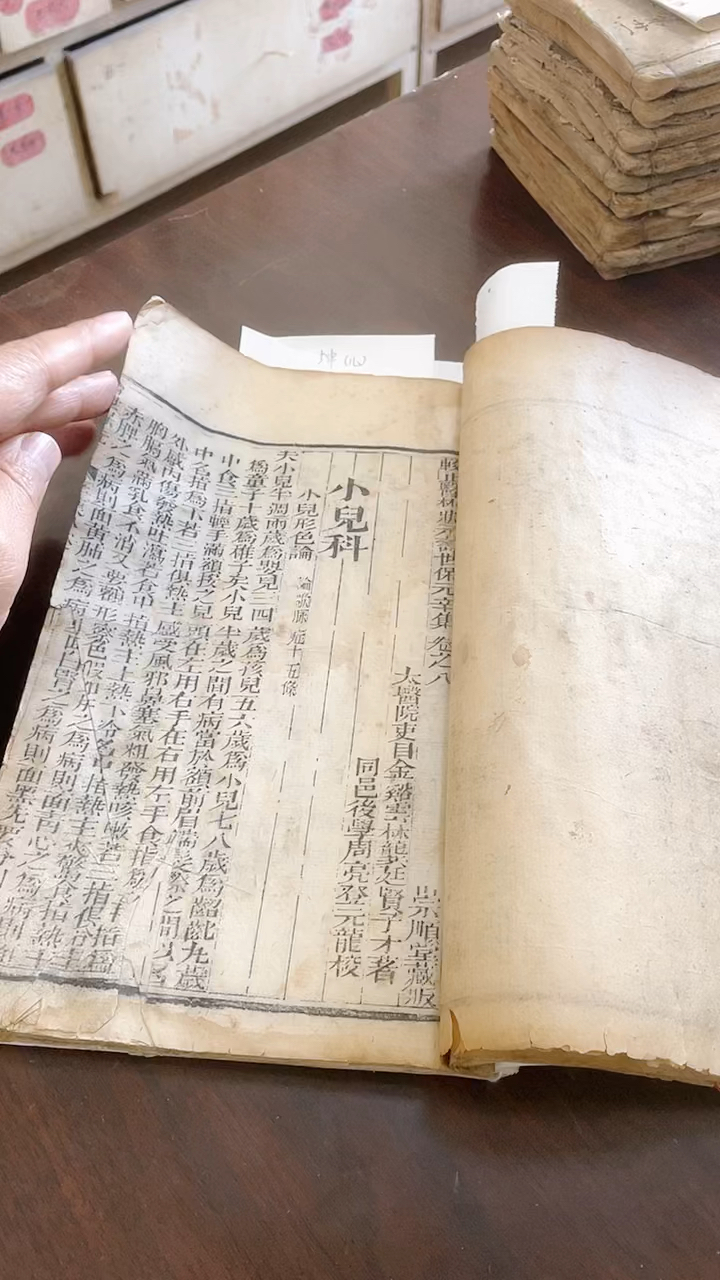 醫林狀元壽世保元辛集 卷之八
崇順堂藏版
太醫院吏目金谿雲林龔廷賢子才著
同邑後學周亮登元龍校
小兒科
小兒形色論 論脉症十五條
夫小兒半週兩歲爲嬰兒三四歲爲孩兒五六歲爲小兒七八歲爲齠齔九歲
爲童子十歲爲稚子矣小兒半歲之間有病當於額前眉端髮際之間以名
中食三指輕手滿額按之兒頭在左用右手在右用左手食指爲上
中指爲中名指爲下若三指俱熱主感受風邪鼻塞氣粗發熱咳嗽若三指俱冷主
外感內傷發熱吐瀉若食中指熱主上熱下冷名中指熱主夾驚食指熱主
胸膈氣滿乳食不消又要觀形察色假如肝之爲病則面青心之爲病則面
赤脾之爲病則面黃肺之爲病則面白腎之爲病則面黑先要分